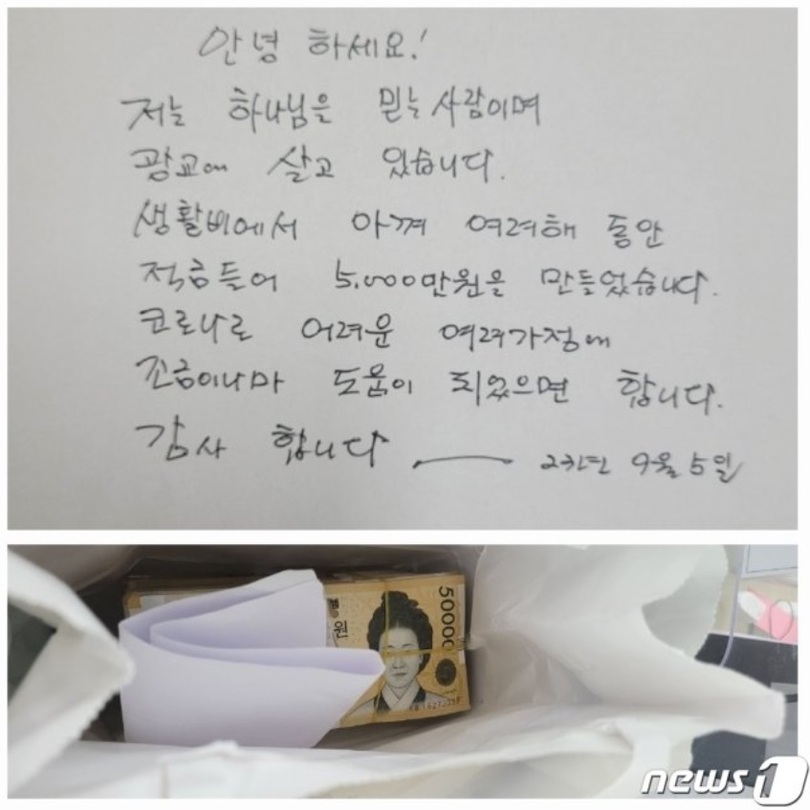 안녕 하세요!
저는 하나님을 믿는 사람이며
광교에 살고 있습니다.
생활비에서 아껴 여려해 동안
적금들어 5.000만원을 만들었습니다.
코로나로 어려운 여러가정에
조금이나마 도움이 되었으면 합니다.
감사 합니다 — 23년 9월 5일
50000
원
news1